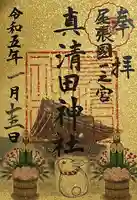 奉拝
尾張國一之宮
真清田神社
令和五年一月十三日